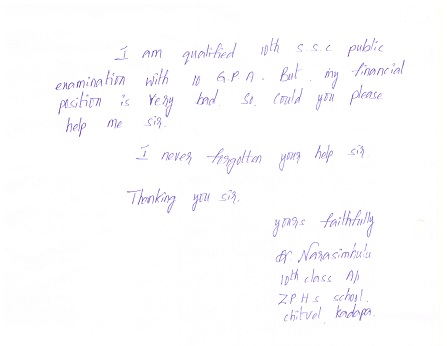 I am qualified 10th S.S.C public
examination with 10 G.P.A. But, my financial
position is very bad. So, could you please
help me sir.
I never forgotten your help sir
Thanking you sir.
yours faithfully
Narasimhulu
10th class
Z.P.H.S school,
chitvel, kadapa.